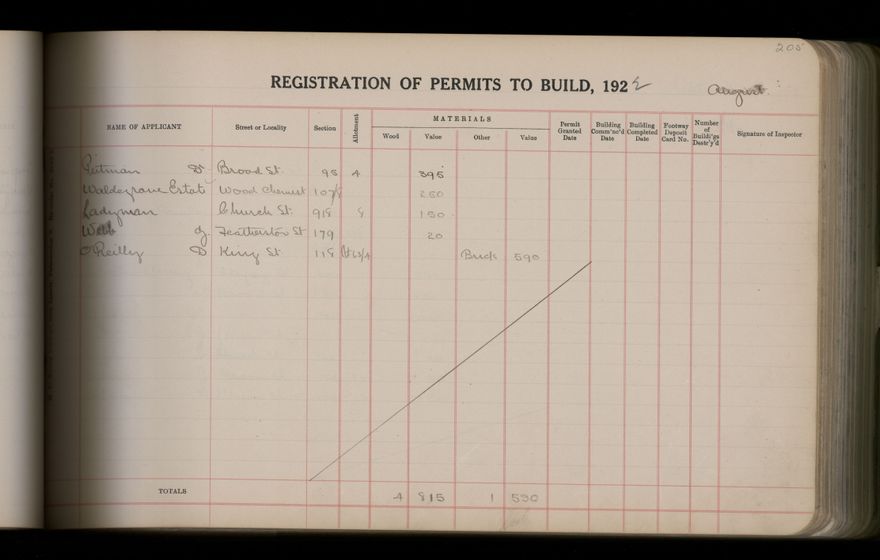 205
REGISTRATION OF PERMITS TO BUILD, 1922 August
MATERIALS
NAME OF APPLICANT Street or Locality Section Allotment Wood Value Other Value Permit Granted Date Building Comm'nc'd Date Building Completed Date Footway Deposit Card No. Number of Buildi'gs Destr'y'd Signature of Inspector
Pittman W Broad St. 95 4 395
Waldegrave Estate Wood 107 250
Ladyman Church St. 918 8 150
Webb J Featherston St 179 20
O'Reilly D King St 118 Brick 590
TOTALS 4 815 1 590